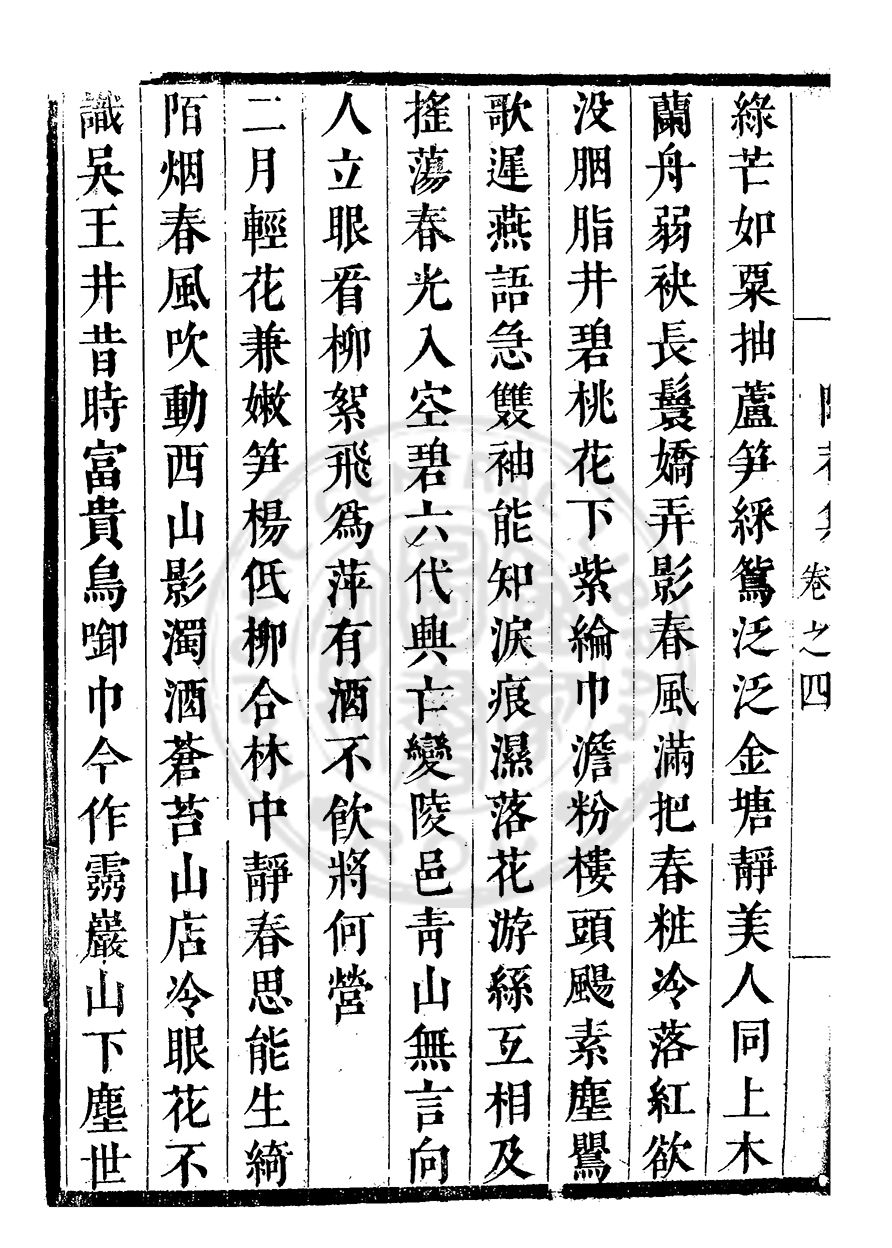 卷之四
綠芒如粟抽蘆笋綵鴛泛泛金塘靜美人同上木
蘭舟弱袂長鬟嬌弄影春風滿把春粧冷落紅欲
没胭脂井碧桃花下紫綸巾澹粉樓頭颺素塵鸎
歌遲燕語急雙袖能知淚痕濕落花游絲互相及
搖蕩春光入空碧六代興亡變陵邑青山無言向
人立眼看柳絮飛爲萍有酒不飲將何營
二月輕花兼嫩笋楊低柳合林中靜春思能生綺
陌烟春風吹動西山影濁酒蒼苔山店冷眼花不
識吳王井昔時富貴烏啣巾今作靈巖山下塵世